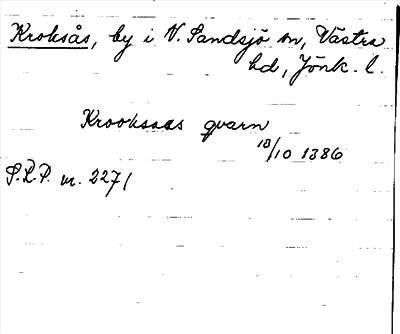 Kroksås, by i V. Sandsjö sn, Västra
hd, Jönk. l.
Krooksaas qvarn
18/10 1386
S.R.P. nr. 2271